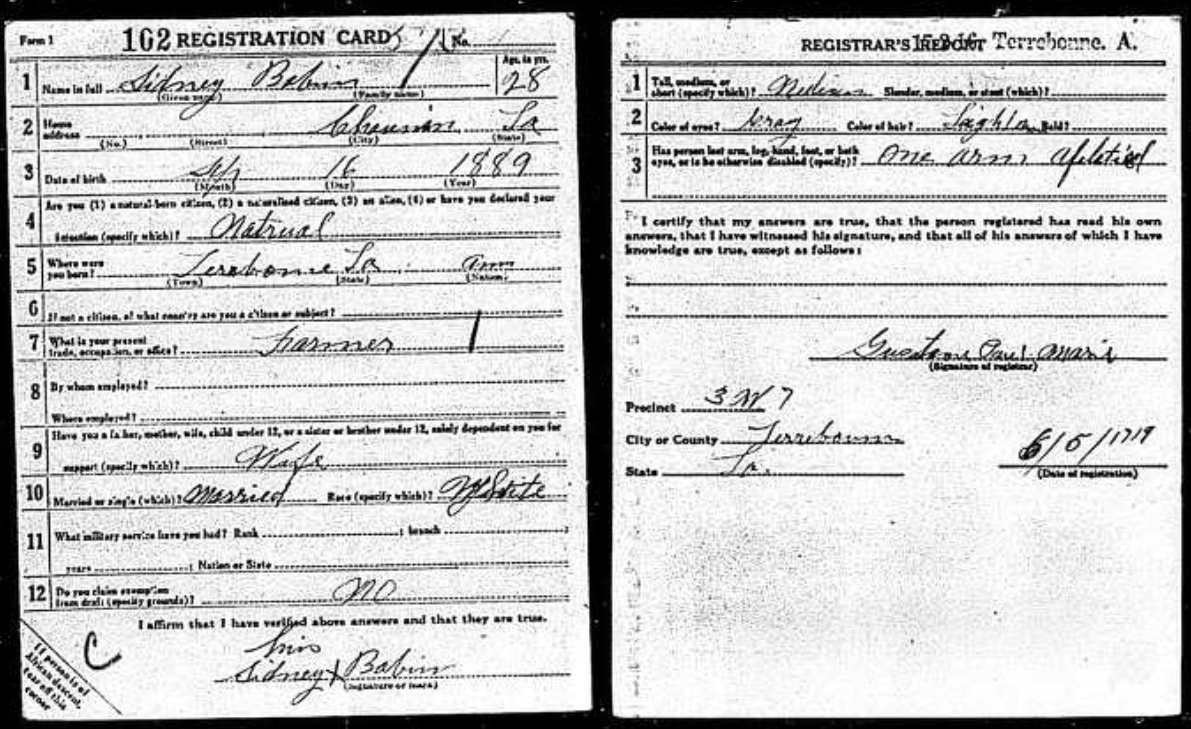 Form 1 162 REGISTRATION CARD No.
1 Name in full Sidney Babin Age, in yrs. 28
(Given name) (Family name)
2 Home address Chauvin La
(No.) (Street) (City) (State)
3 Date of birth 16 1889
(Month) (Day) (Year)
4 Are you (1) a natural-born citizen, (2) a naturalized citizen, (3) an alien, (4) or have you declared your
intention (specify which)? Natrual
5 Where were you born? Terebonne La Am
(Town) (State) (Nation)
6 If not a citizen, of what country are you a citizen or subject?
7 What is your present trade, occupation, or office? Farmer
8 By whom employed?
Where employed?
9 Have you a father, mother, wife, child under 12, or a sister or brother under 12, solely dependent on you for
support (specify which)? Wife
10 Married or single (which)? Married Race (specify which)? White
11 What military service have you had? Rank ; branch ;
years ; Nation or State
12 Do you claim exemption from draft (specify grounds)? NO
I affirm that I have verified above answers and that they are true.
his
Sidney X Babin
(Signature or mark)
C
If person is of
African descent,
tear off this
corner
REGISTRAR'S REPORT Terrebonne. A.
1 Tall, medium, or short (specify which)? Medium Slender, medium, or stout (which)?
2 Color of eyes? Gray Color of hair? Bald?
3 Has person lost arm, leg, hand, foot, or both eyes, or is he otherwise disabled (specify)? One arm
I certify that my answers are true, that the person registered has read his own
answers, that I have witnessed his signature, and that all of his answers of which I have
knowledge are true, except as follows:
Marie
(Signature of registrar)
Precinct 3 W 7
City or County Terrebonne
State La.
(Date of registration)